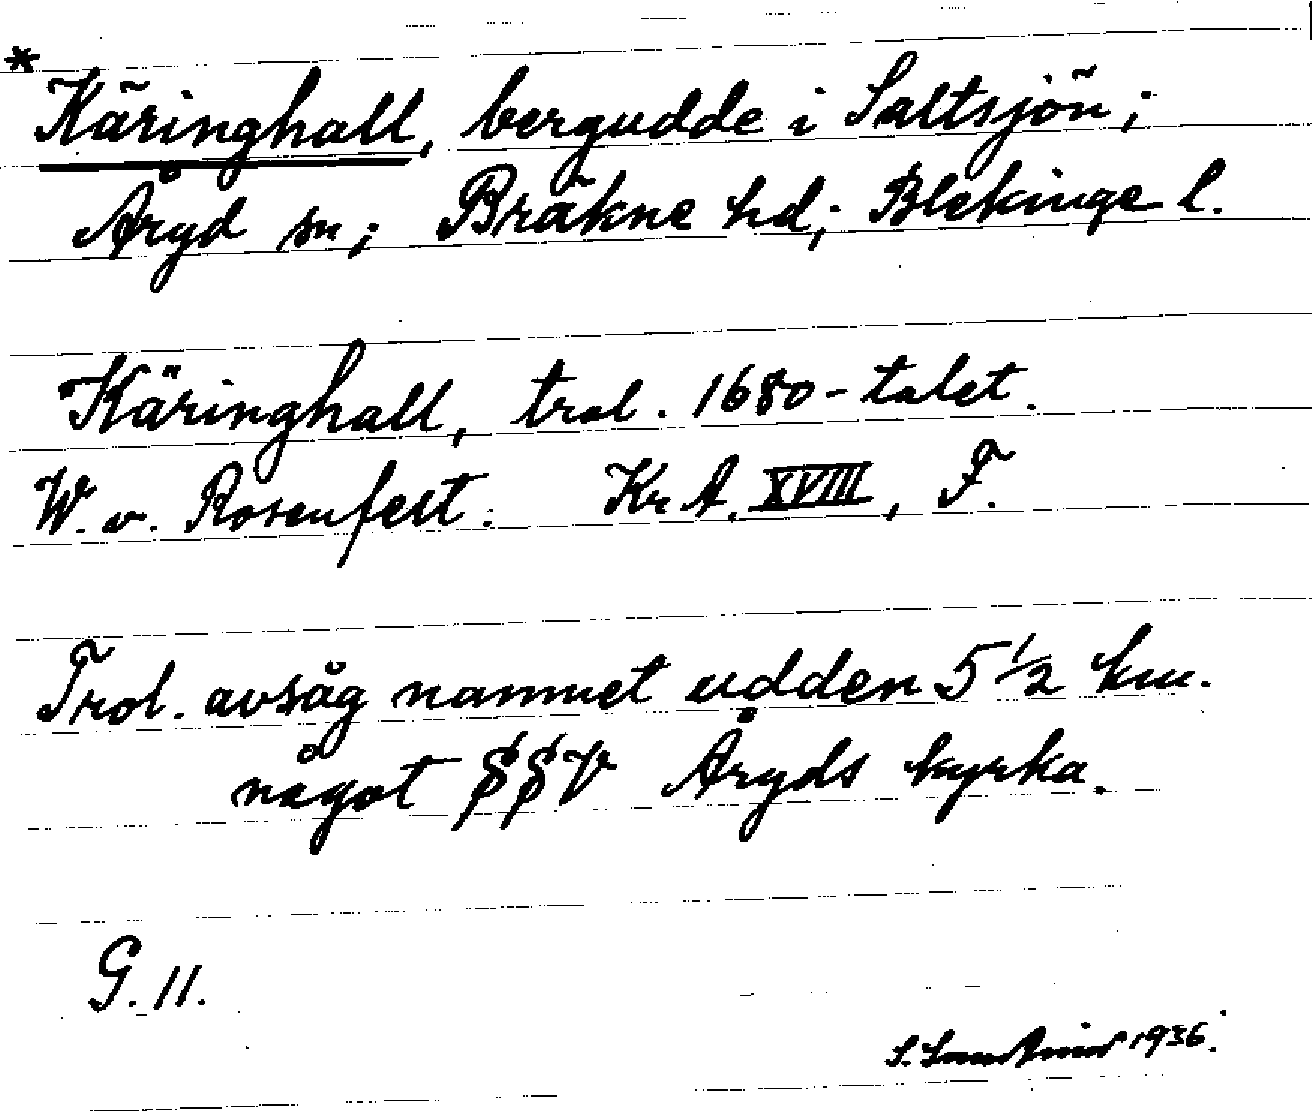 *
Käringhall, bergudde i Saltsjön;
Åryd sn; Bräkne hd; Blekinge l.
Käringhall, trol. 1680-talet.
W. v. Rosenfelt. Kr A. XVIII, F.
Trol. avsåg namnet udden 5 1/2 km.
något SSV Åryds kyrka.
G. 11.
S. 1936.